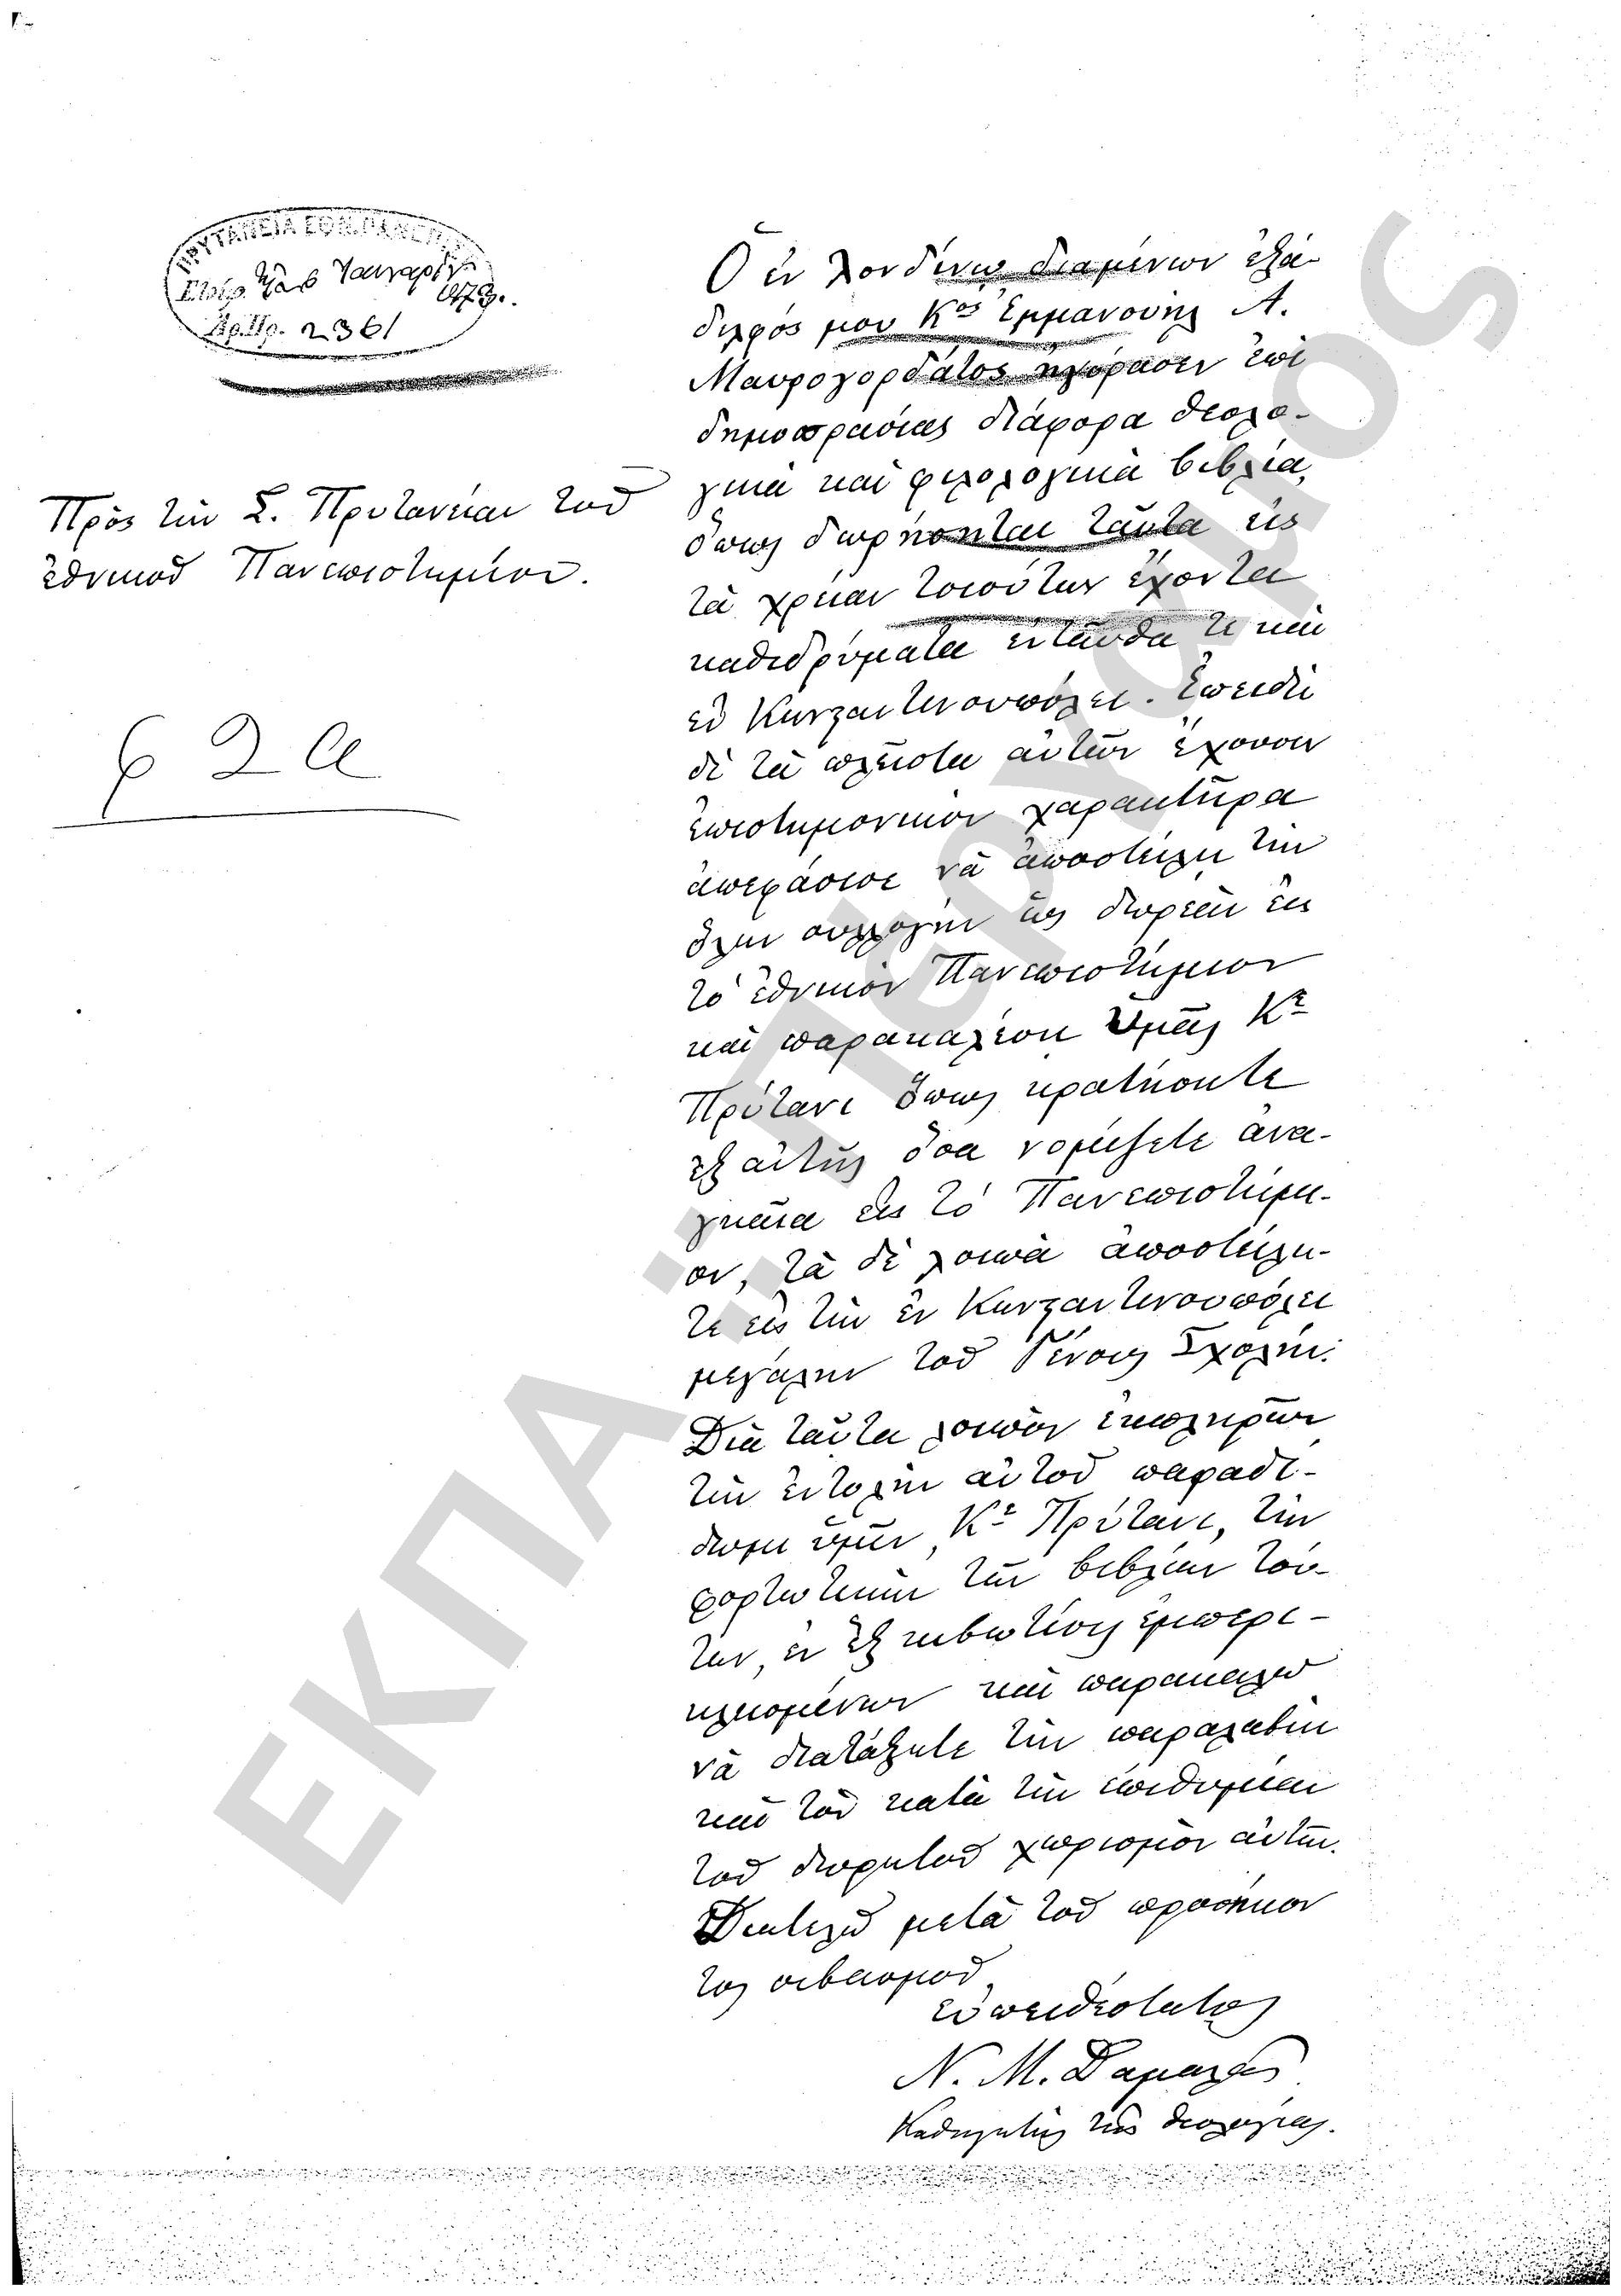 ΠΡΥΤΑΝΕΙΑ ΕΘΝ. ΠΑΝΕΠΙΣ
Ἐλήφ. τῇ 6 Ἰανουαρίου
1879.
Ἀρ. Πρ. 2361
Πρὸς τὴν Σ. Πρυτανείαν τοῦ
Ἐθνικοῦ Πανεπιστημίου.
62α
Ὁ ἐν Λονδίνῳ διαμένων ἐξά-
δελφός μου Κος Ἐμμανουὴλ Α.
Μαυρογορδάτος ἠγόρασεν ἐπὶ
δημοπρασίας διάφορα θεολο-
γικὰ καὶ φιλολογικὰ βιβλία,
ὅπως δωρήσηται ταῦτα εἰς
τὰ χρείαν τοιούτων ἔχοντα
καθιδρύματα ἐνταῦθα τε καὶ
ἐν Κωνσταντινουπόλει. Ἐπειδὴ
δὲ τὰ πλεῖστα αὐτῶν ἔχουσιν
ἐπιστημονικὸν χαρακτῆρα
ἀπεφάσισε νὰ ἀποστείλῃ τὴν
ὅλην συλλογὴν ὡς δωρεὰν εἰς
τὸ Ἐθνικὸν Πανεπιστήμιον
καὶ παρακαλέσῃ Ὑμᾶς Κε
Πρύτανι ὅπως κρατήσητε
ἐξ αὐτῆς ὅσα νομίζετε ἀνα-
γκαῖα εἰς τὸ Πανεπιστήμι-
ον, τὰ δὲ λοιπὰ ἀποστείλη-
τε εἰς τὴν ἐν Κωνσταντινουπόλει
μεγάλην τοῦ Γένους Σχολήν.
Διὰ ταῦτα λοιπὸν ἐκπληρῶν
τὴν ἐντολὴν αὐτοῦ παραδί-
δωμι ὑμῖν, Κε Πρύτανι, τὴν
φορτωτικὴν τῶν βιβλίων τού-
των, ἐν ἓξ κιβωτίοις ἐμπερι-
κλειομένων καὶ παρακαλῶ
νὰ διατάξητε τὴν παραλαβὴν
καὶ τὸν κατὰ τὴν ἐπιθυμίαν
τοῦ δωρητοῦ χωρισμὸν αὐτῶν.
Διατελῶ μετὰ τοῦ προσήκον
τος σεβασμοῦ
εὐπειθέστατος
Ν. Μ. Δαμαλᾶς
Καθηγητὴς τῆς Θεολογίας.
ΕΚΠΑ - Πέργαμος